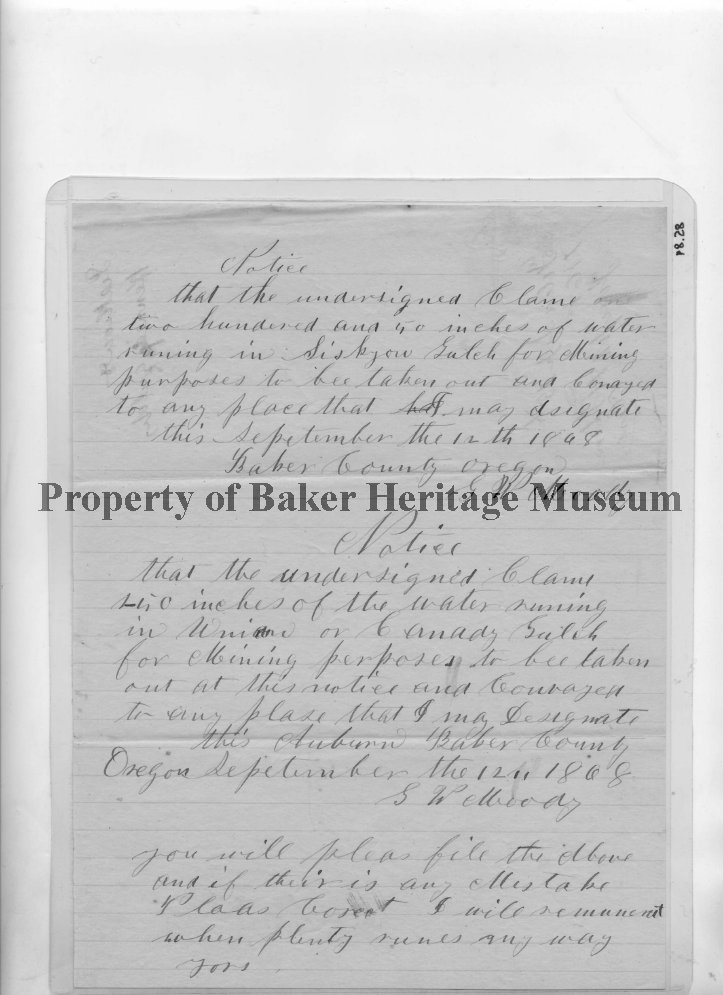 82.84
Notice
that the undersigned Clame
two hundered and 50 inches of water
runing in Siskyou Gulch for Mining
purposes to bee taken out and Convayed
to any place that I may dsignate
this Sepetember the 12 th 1868
Baker County oregon
G W Moody
Property of Baker Heritage Museum
Notice
that the undersigned Clame
250 inches of the water runing
in Union or Canady Gulch
for Mining perposes to bee taken
out at this notice and Convayed
to any plase that I may Designate
this Auburn Baker County
Oregon Sepetember the 12 1868
G W Moody
you will pleas file the Above
and if their is any Mistake
Plaas I will remunerat
when plenty runes any way
yors